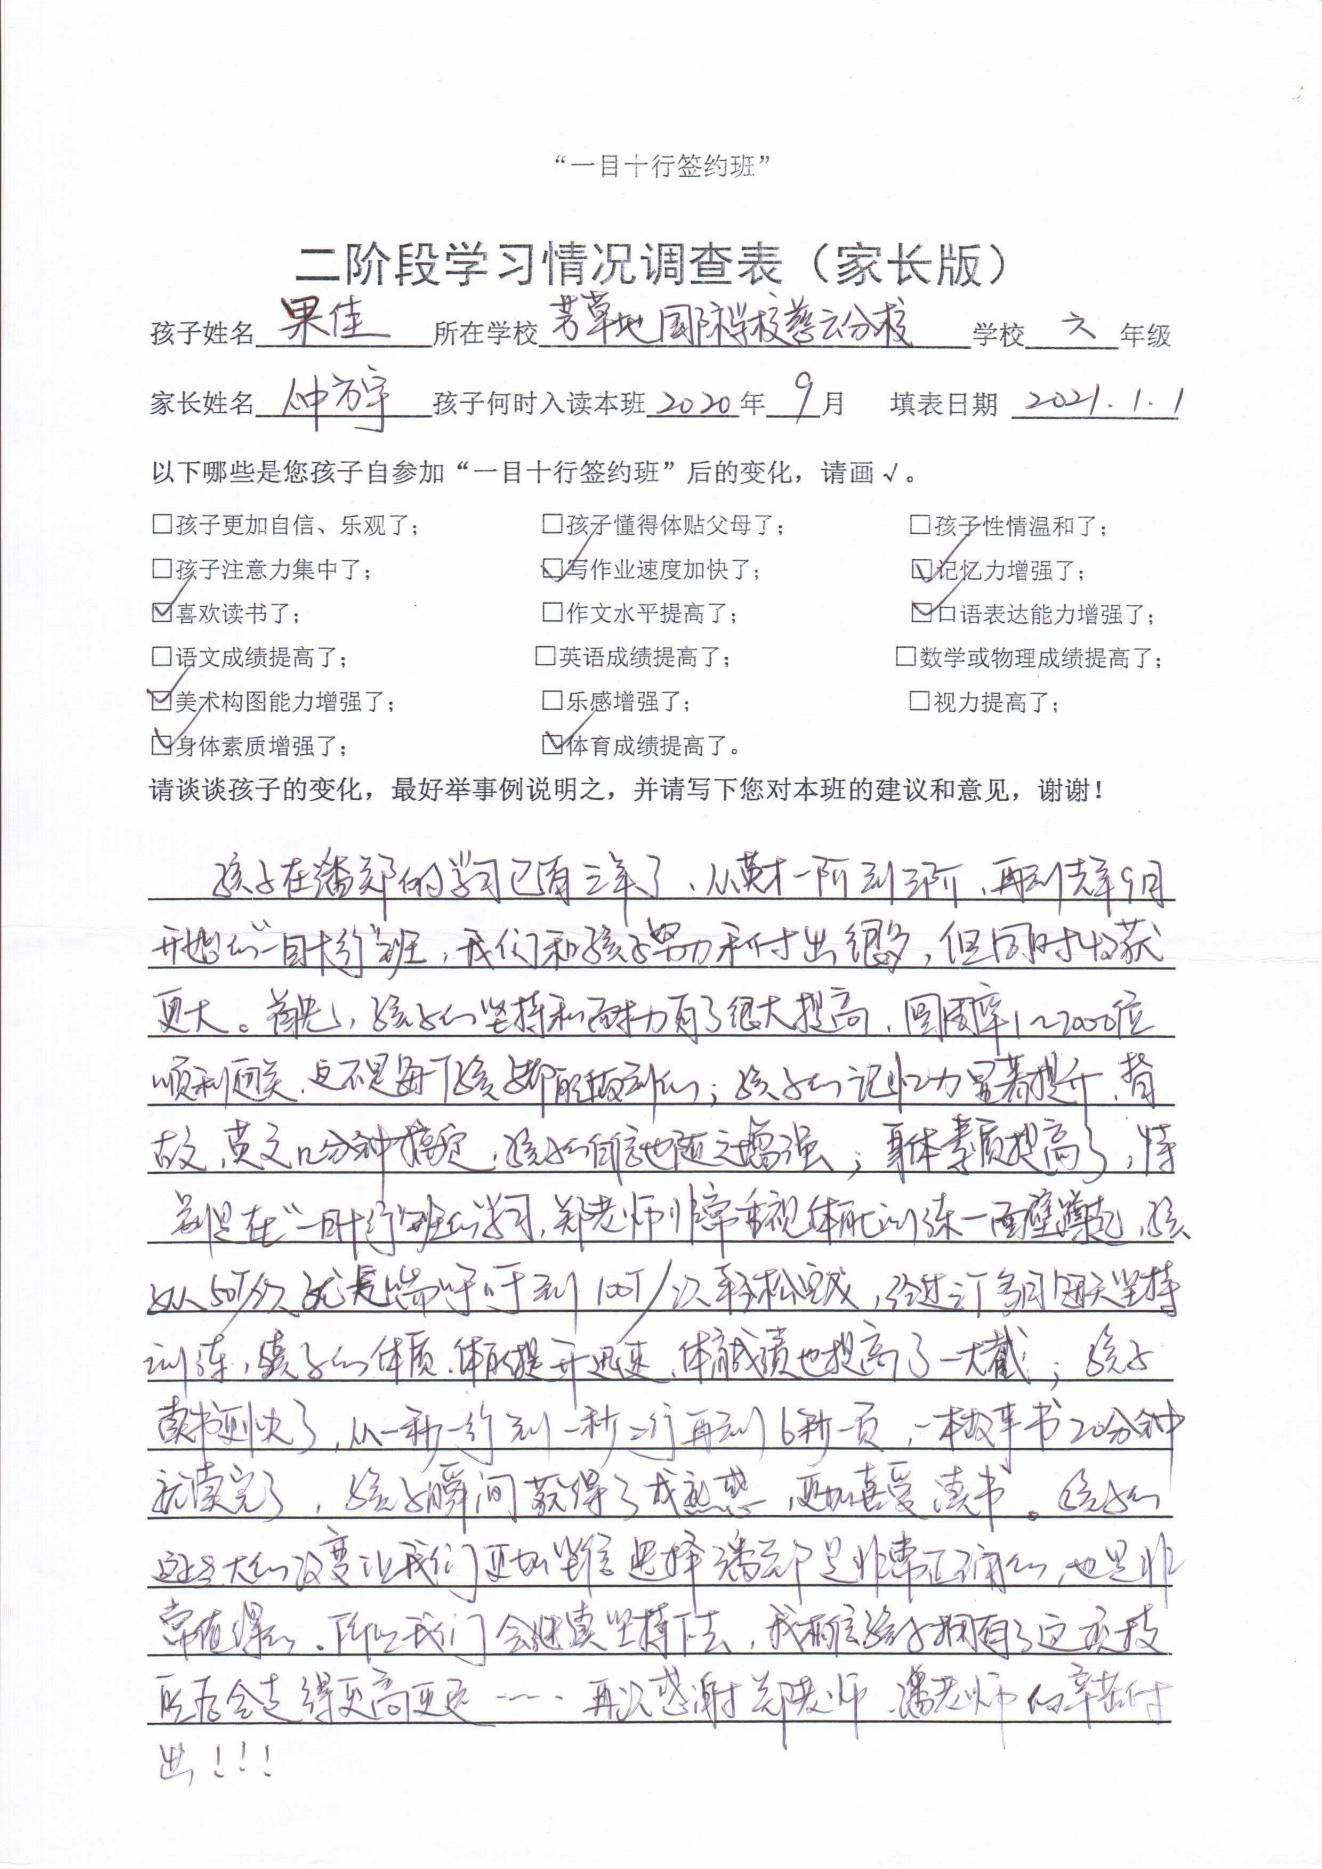 “一目十行签约班”
二阶段学习情况调查表（家长版）
孩子姓名 果佳 所在学校 芳草地国际学校慈云分校 学校 六 年级
家长姓名 仲方宇 孩子何时入读本班 2020 年 9 月 填表日期 2021.1.1
以下哪些是您孩子自参加“一目十行签约班”后的变化，请画√。
□孩子更加自信、乐观了； □孩子懂得体贴父母了； □孩子性情温和了；
□孩子注意力集中了； ☑写作业速度加快了； ☑记忆力增强了；
☑喜欢读书了； □作文水平提高了； ☑口语表达能力增强了；
□语文成绩提高了； □英语成绩提高了； □数学或物理成绩提高了；
☑美术构图能力增强了； □乐感增强了； □视力提高了；
☑身体素质增强了； ☑体育成绩提高了。
请谈谈孩子的变化，最好举事例说明之，并请写下您对本班的建议和意见，谢谢！
孩子在潘郑的学习已有三年了、从英才一阶到三阶，再到去年9月
开始的“一目十行”班，我们和孩子努力和付出很多，但同时收获
更大。首先，孩子的坚持和耐力有了很大提高，圆周率1~2000位
顺利通关，这不是每个孩子都能做到的；孩子的记忆力显著提升，背
古文，英文几分钟搞定，孩子的自信也随之增强；身体素质提高了，特
别是在“一目十行”班的学习，郑老师非常重视体能训练一面壁蹲起，孩
子从50个/次就是喘吁吁到100个/次轻松完成，经过三个多月每天坚持
训练，孩子的体质、体能提升迅速，体育成绩也提高了一大截；孩子
读书更快了，从一秒一行到一秒二行再到6秒一页，一本故事书20分钟
就读完了，孩子瞬间获得了成就感，更加喜爱读书。孩子的
这些巨大的改变让我们更加坚信选择潘郑是非常正确的，也是非
常值得的。所以我们会继续坚持下去，我相信孩子拥有了这项技
能后会走得更高更远……再次感谢郑老师、潘老师的辛苦付
出！！！